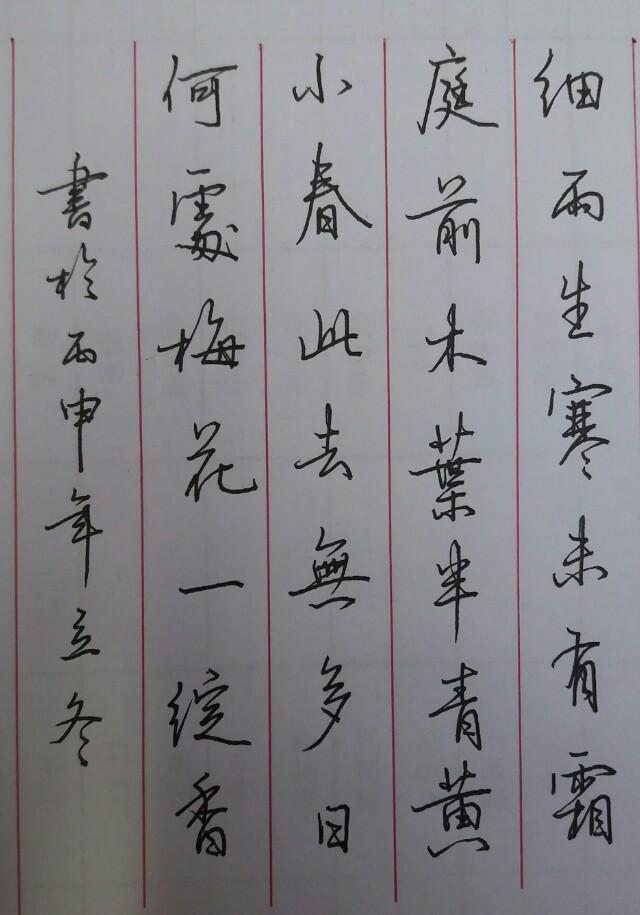 細雨生寒未有霜
庭前木葉半青黄
小春此去無多日
何處梅花一綻香
書於丙申年立冬